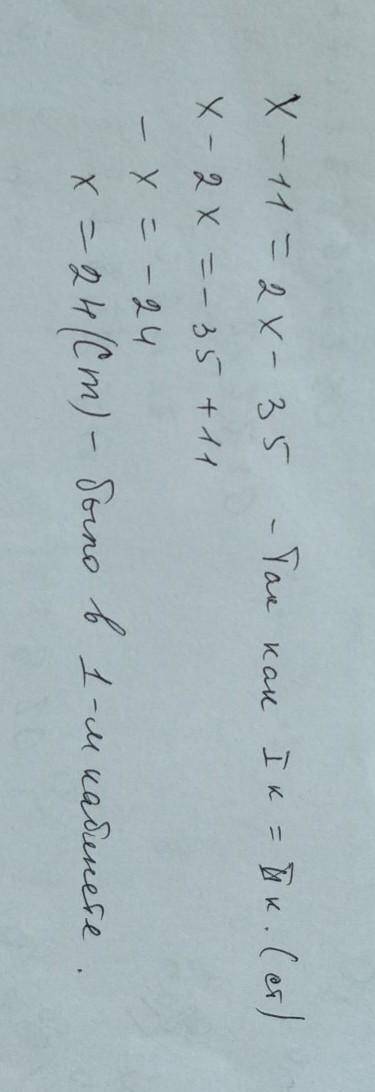 x - 11 = 2x - 35 - Так как I к = II к. (ст)
x - 2x = - 35 + 11
- x = - 24
x = 24 (Ст) - было в 1-м кабинете.